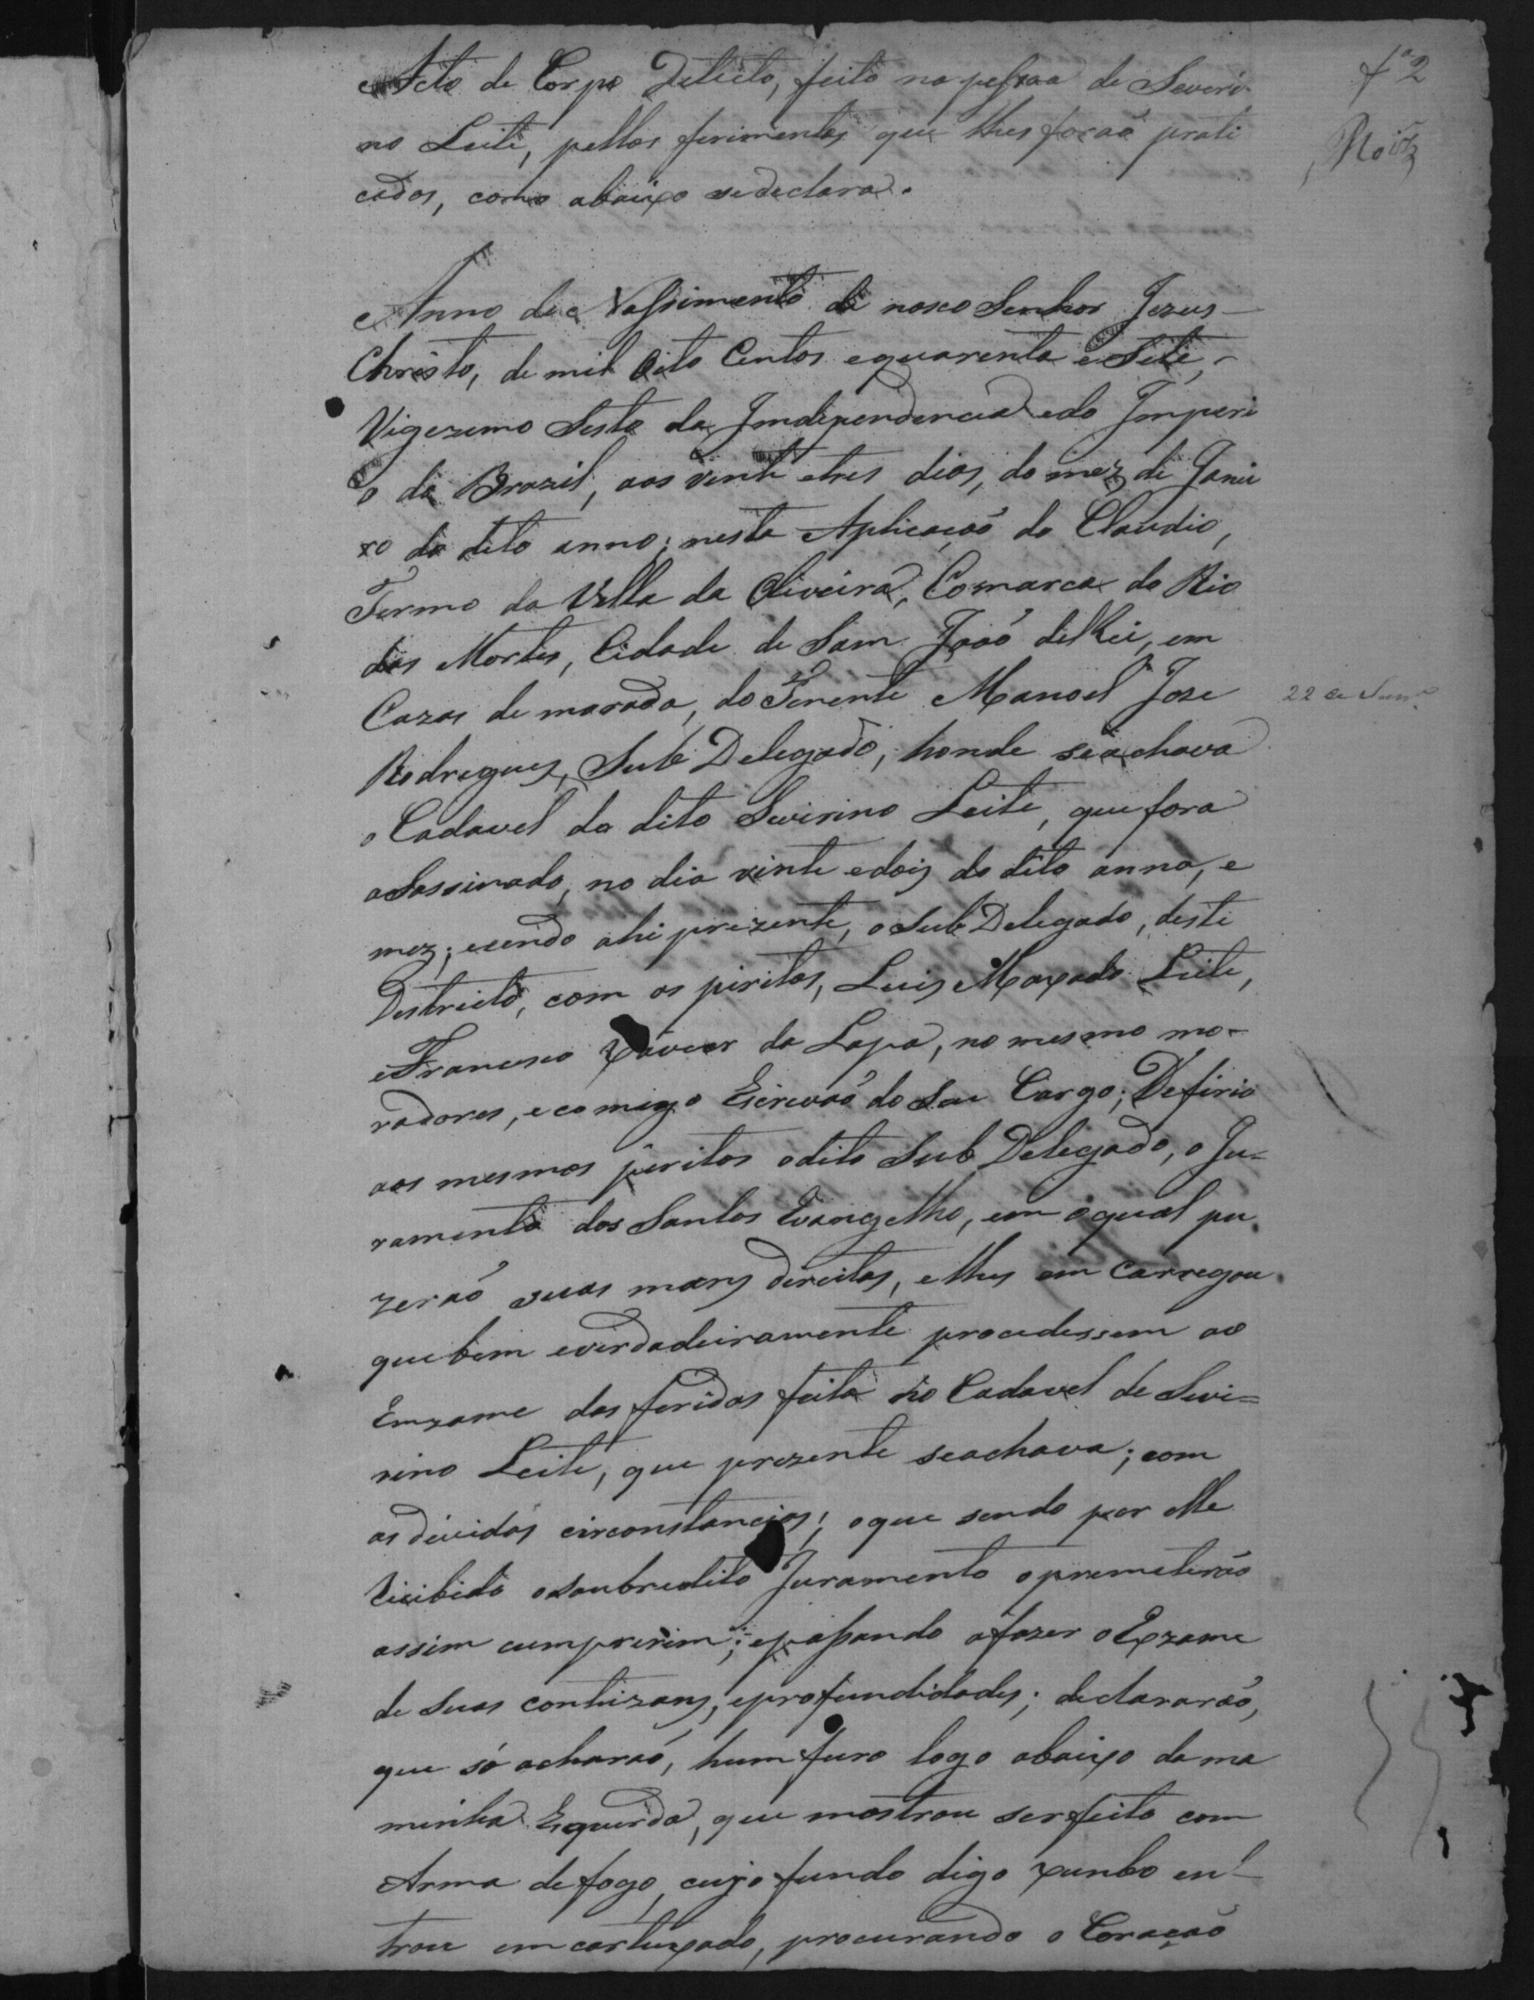 Acto de Corpo Delicto, feito na pessoa de Severi-
no Leite, pellos ferimentos que lhes foraõ prati
cados, como abaixo sedeclara.
fª 2
Anno do Nassimento de nosco Senhor Jezus
Christo, de mil Oito Centos equarenta eSete,
Vigezimo Sesto da Imdipendencia edo Imperi
o do Brazil, aos vinte etres dias, do mez de Janei
ro do dito anno; nesta Aplicaçaõ do Claudio,
Termo da Villa da Oliveira, Comarca do Rio
das Mortes, Cidade de Sam Joaõ delRei, em
Cazas de morada, do Tenente Manoel Joze
22 de
Rodregues, Sub Delegado, honde seachava
o Cadavel do dito Sivirino Leite, que fora
aSassinado, no dia vinte edois do dito anno, e
mez; esendo ahi prezente, o Sub Delegado, deste
Destricto, com os piritos, Luis Maxado Leite,
eFrancisco Xavier da Lapa, no mesmo mo-
radores, ecomigo Escrivaõ do Seu Cargo; Defirio
aos mesmos peritos odito Sub Delegado, o Ju=
ramento dos Santos Evangelho, em oqual pu
zeraõ suas mans direitas, elhes em carregou
que bem everdadeiramente procedessem ao
Emzame das feridas feita no Cadavel de Sivi=
rino Leite, que prezente seachava; com
as devidas circonstancias; oque sendo por elle
Recibido osoubredito Juramento oprometeraõ
assim cumprirem; epassando afazer oExzame
de suas contuizans, eprofundidades; declararaõ,
que só acharaõ, hum furo logo abaixo dama
minha Esquerda, que mostrou serfeito com
Arma defogo, cujo fundo digo xunbo en-
trou em cartuxado, procurando o Coraçaõ